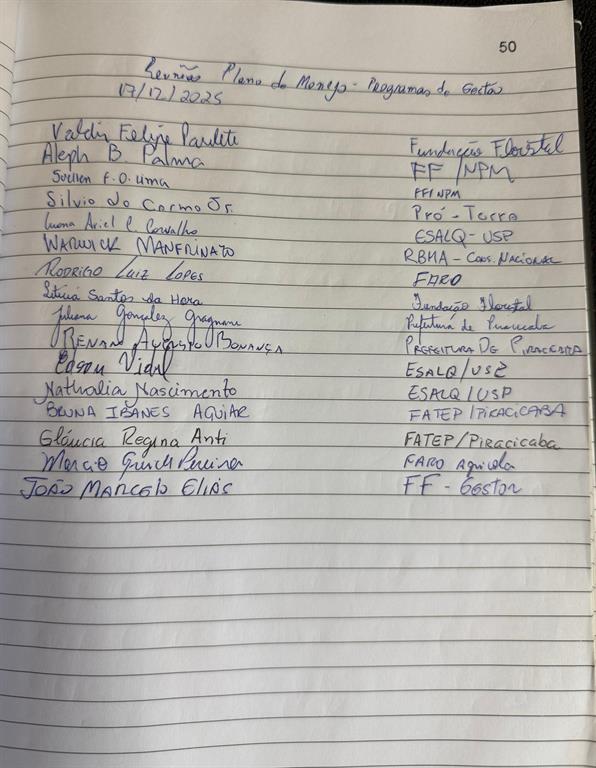 50
Reunião Plano de Manejo - Programas de Gestão
17/12/2025
Valdir Felipe Paulete Fundação Florestal
Aleph B. Palma FF/NPM
Suellen F. O. Lima FF/NPM
Silvio do Carmo Jr. Pró-Terra
Luana Ariel P. Carvalho ESALQ-USP
WARWICK MANFRINATO RBMA - COOR. NACIONAL
RODRIGO LUIZ LOPES FARO
Letícia Santos da Hora Fundação Florestal
Juliana Gonzalez Gragnani Prefeitura de Piracicaba
RENAN AUGUSTO BONANÇA PREFEITURA DE PIRACICABA
Edson Vidal ESALQ/USP
Nathalia Nascimento ESALQ/USP
BRUNA IBANES AGUIAR FATEP/PIRACICABA
Gláucia Regina Anti FATEP/Piracicaba
Marcio Pereira FARO Agrícola
JOÃO MARCELO ELIAS FF - Gestor